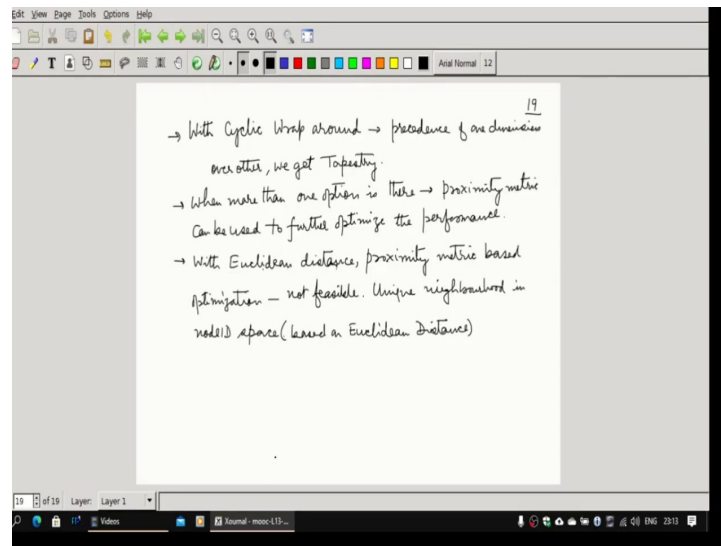 Edit View Page Tools Options Help
T
Arial Normal 12
19
→ With Cyclic Wrap around → precedence of one dimension
over other, we get Tapestry.
→ When more than one option is there → proximity metric
can be used to further optimize the performance.
→ With Euclidean distance, proximity metric based
optimization — not feasible. Unique neighbourhood in
nodeID space (based on Euclidean Distance)
19 of 19 Layer: Layer 1
Videos Xournal - mooc-L13-... ENG 23:13